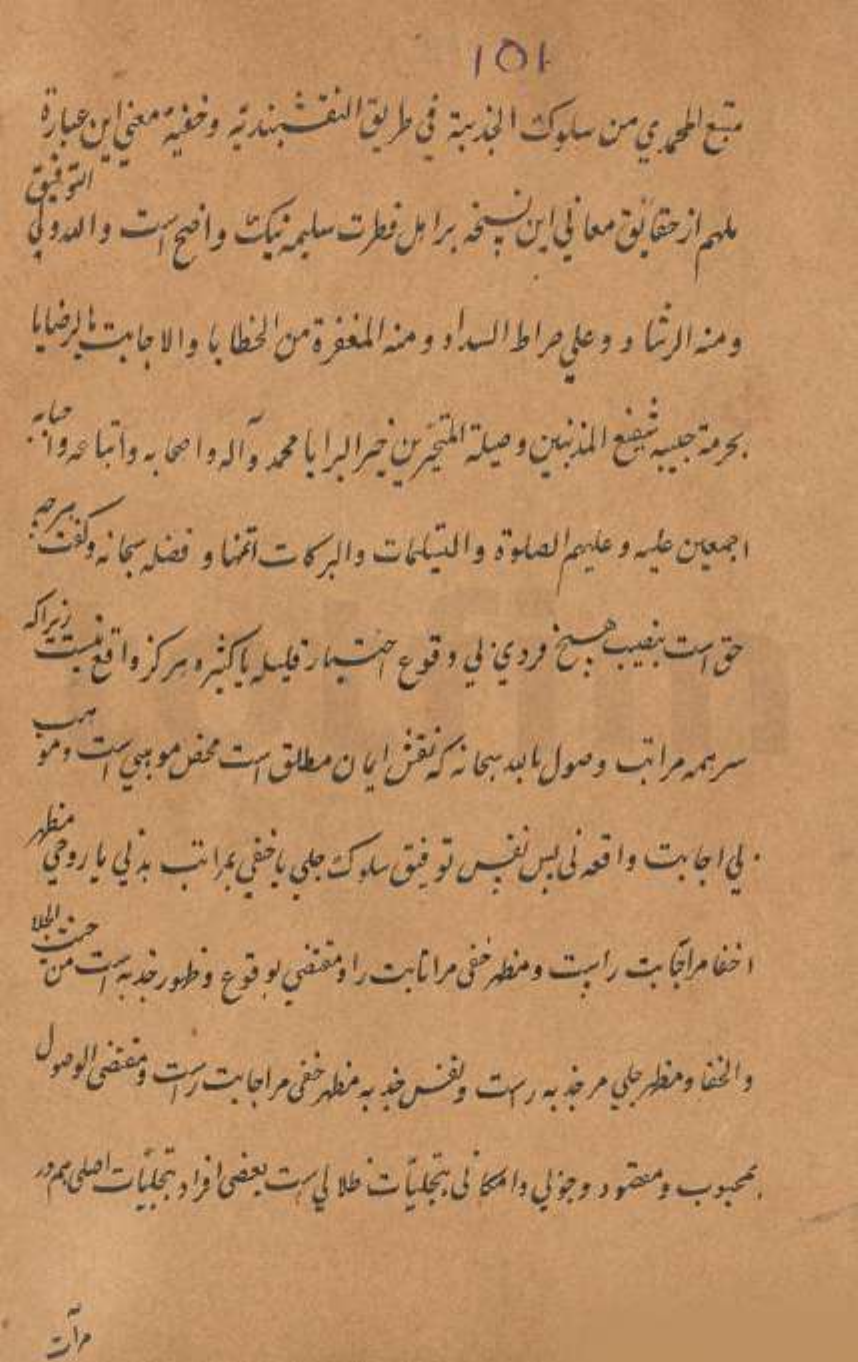 ۱۵۱
متبع المحمدي من سلوك الجذبة في طريق النقشبنديه وخفيه معني اين عبارة
ملهم از حقايق معاني اين نسخه بر اهل فطرت سليمه نيك واضح است والله ولي التوفيق
ومنه الرشاد وعلي صراط السداد ومنه المغفرة من الخطايا والاجابت بالرضايا
بحرمة حبيبه شفيع المذنبين وصيلة المتحيرين خير البرايا محمد وآله واصحابه واتباعه واحبابه
اجمعين عليه وعليهم الصلوة والتسليمات والبركات اتمها و فضله سبحانه وگفت هرچه
حق است بنصيب هيچ فردي في وقوع اختيار قليله يا كثيره هرگز واقع نيست زيراكه
سر همه مراتب وصول بالله سبحانه كه نفس ايمان مطلق است محض موهبي است وموهب
لي اجابت واقعه ني پس نفس توفيق سلوك جلي يا خفي بمراتب بدني يا روحي مظهر
اخفا مر اجابت راست ومظهر خفي مر انابت را ومقتضي بوقوع وظهور جذبه است من حيث الجلا
والخفا ومظهر جلي مر جذبه راست ونفس جذبه مظهر خفي مر اجابت راست ومقتضى الوصول
بمحبوب ومقصود وجوبي وامكاني بتجليّات ظلالي است بعضى افراد بتجليّات اصلى هم در
مرآت